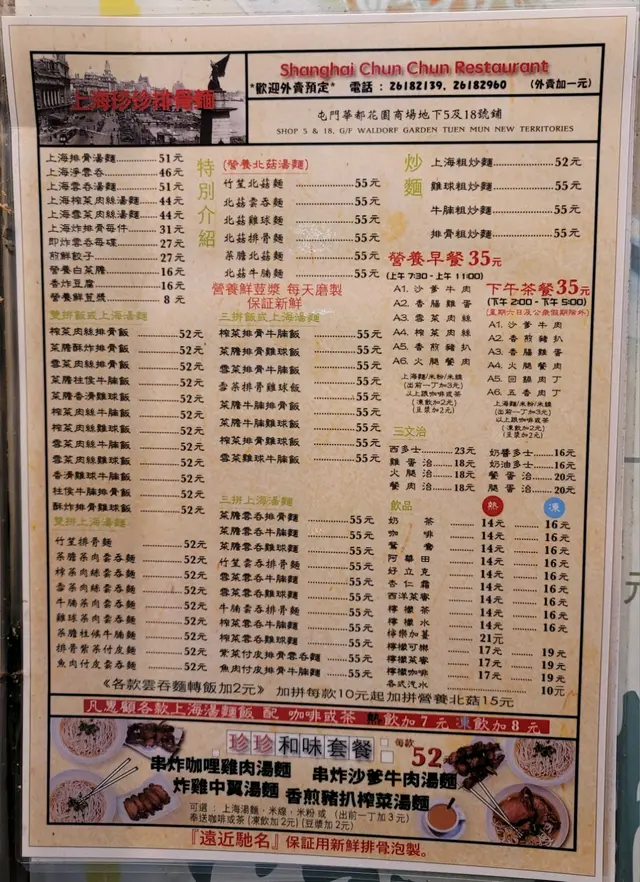 上海珍珍排骨麵
Shanghai Chun Chun Restaurant
*歡迎外賣預定* 電話：26182139, 26182960 (外賣加一元)
屯門華都花園商場地下5及18號鋪
SHOP 5 & 18, G/F WALDORF GARDEN TUEN MUN NEW TERRITORIES
上海排骨湯麵 51元
上海淨雲吞 46元
上海雲吞湯麵 51元
上海榨菜肉絲湯麵 44元
上海雪菜肉絲湯麵 44元
上海炸排骨每件 31元
即炸雲吞每碟 27元
煎鮮餃子 27元
營養白菜膽 16元
香炸豆腐 16元
營養鮮荳漿 8元
雙拼飯或上海湯麵
榨菜肉絲排骨飯 52元
菜膽酥炸排骨飯 52元
雪菜肉絲排骨飯 52元
菜膽柱侯牛腩飯 52元
菜膽香滑雞球飯 52元
榨菜肉絲牛腩飯 52元
榨菜肉絲雞球飯 52元
雪菜肉絲牛腩飯 52元
雪菜肉絲雞球飯 52元
香滑雞球牛腩飯 52元
柱侯牛腩排骨飯 52元
酥炸排骨雞球飯 52元
雙拼上海湯麵
竹笙排骨麵 52元
菜膽菜肉雲吞麵 52元
榨菜肉絲雲吞麵 52元
雪菜肉絲雲吞麵 52元
牛腩菜肉雲吞麵 52元
雞球菜肉雲吞麵 52元
菜膽柱候牛腩麵 52元
排骨紫菜付皮麵 52元
魚肉付皮雲吞麵 52元
特別介紹
(營養北菇湯麵)
竹笙北菇麵 55元
北菇雲吞麵 55元
北菇雞球麵 55元
北菇排骨麵 55元
菜膽北菇麵 55元
北菇牛腩麵 55元
營養鮮荳漿 每天磨製
保証新鮮
三拼飯或上海湯麵
榨菜排骨牛腩飯 55元
菜膽排骨雞球飯 55元
雪菜排骨牛腩飯 55元
雪菜排骨雞球飯 55元
菜膽牛腩排骨飯 55元
菜膽牛腩雞球飯 55元
榨菜排骨雞球飯 55元
雪菜雞球牛腩飯 55元
三拼上海湯麵
菜膽雲吞排骨麵 55元
菜膽雲吞牛腩麵 55元
菜膽雲吞雞球麵 55元
竹笙雲吞排骨麵 55元
雪菜雲吞牛腩麵 55元
雪菜雲吞雞球麵 55元
牛腩雲吞排骨麵 55元
榨菜雲吞排骨麵 55元
榨菜雲吞牛腩麵 55元
榨菜雲吞雞球麵 55元
紫菜付皮排骨雲吞麵 55元
魚肉付皮排骨雲吞麵 55元
炒麵
上海粗炒麵 52元
雞球粗炒麵 55元
牛腩粗炒麵 55元
排骨粗炒麵 55元
營養早餐35元
(上午 7:30 - 上午 11:00)
A1. 沙爹牛肉
A2. 香腸雞蛋
A3. 雪菜肉絲
A4. 榨菜肉絲
A5. 香煎豬扒
A6. 火腿餐肉
上海麵/米粉/米線
(出前一丁加3元)
以上跟咖啡或茶
(凍飲加2元)
(豆漿加2元)
下午茶餐35元
(下午 2:00 - 下午 5:00)
(星期六日及公衆假期除外)
A1. 沙爹牛肉
A2. 香煎豬扒
A3. 香腸雞蛋
A4. 火腿餐肉
A5. 回鍋肉丁
A6. 五香肉丁
上海麵/米粉/米線
(出前一丁加3元)
以上跟咖啡或茶
(凍飲加2元)
(豆漿加2元)
三文治
西多士 23元
雞蛋治 18元
火腿治 18元
餐肉治 18元
奶醬多士 16元
奶油多士 16元
餐蛋治 20元
腿蛋治 20元
飲品 熱 凍
奶茶 14元 16元
咖啡 14元 16元
鴛鴦 14元 16元
阿華田 14元 16元
好立克 14元 16元
杏仁霜 14元 16元
西洋菜蜜 14元 16元
檸檬茶 14元 16元
檸檬水 14元 16元
檸樂加薑 21元
檸檬可樂 17元 19元
檸檬菜蜜 17元 19元
各式汽水 10元
《各款雲吞麵轉飯加2元》 加拼每款10元起加拼營養北菇15元
凡惠顧各款上海湯麵飯 配 咖啡或茶 熱飲加7元 凍飲加8元
珍珍和味套餐 每款52元
串炸咖哩雞肉湯麵 串炸沙爹牛肉湯麵
炸雞中翼湯麵 香煎豬扒榨菜湯麵
可選：上海湯麵，米線，米粉 或 (出前一丁加3元)
奉送咖啡或茶 (凍飲加2元) (豆漿加2元)
『遠近馳名』保証用新鮮排骨泡製。
元